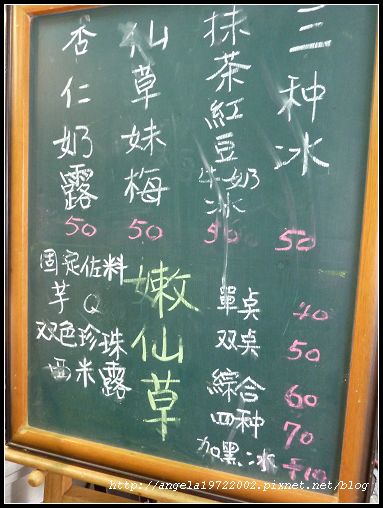 三种冰
50
抹茶紅豆牛奶冰
50
仙草妹梅
50
杏仁奶露
50
單桌 40
双桌 50
綜合 60
四种 70
加黑冰 +10
嫩仙草
固定佐料
芋Q
双色珍珠
西米露
http://angela19722002.pixnet.net/blog